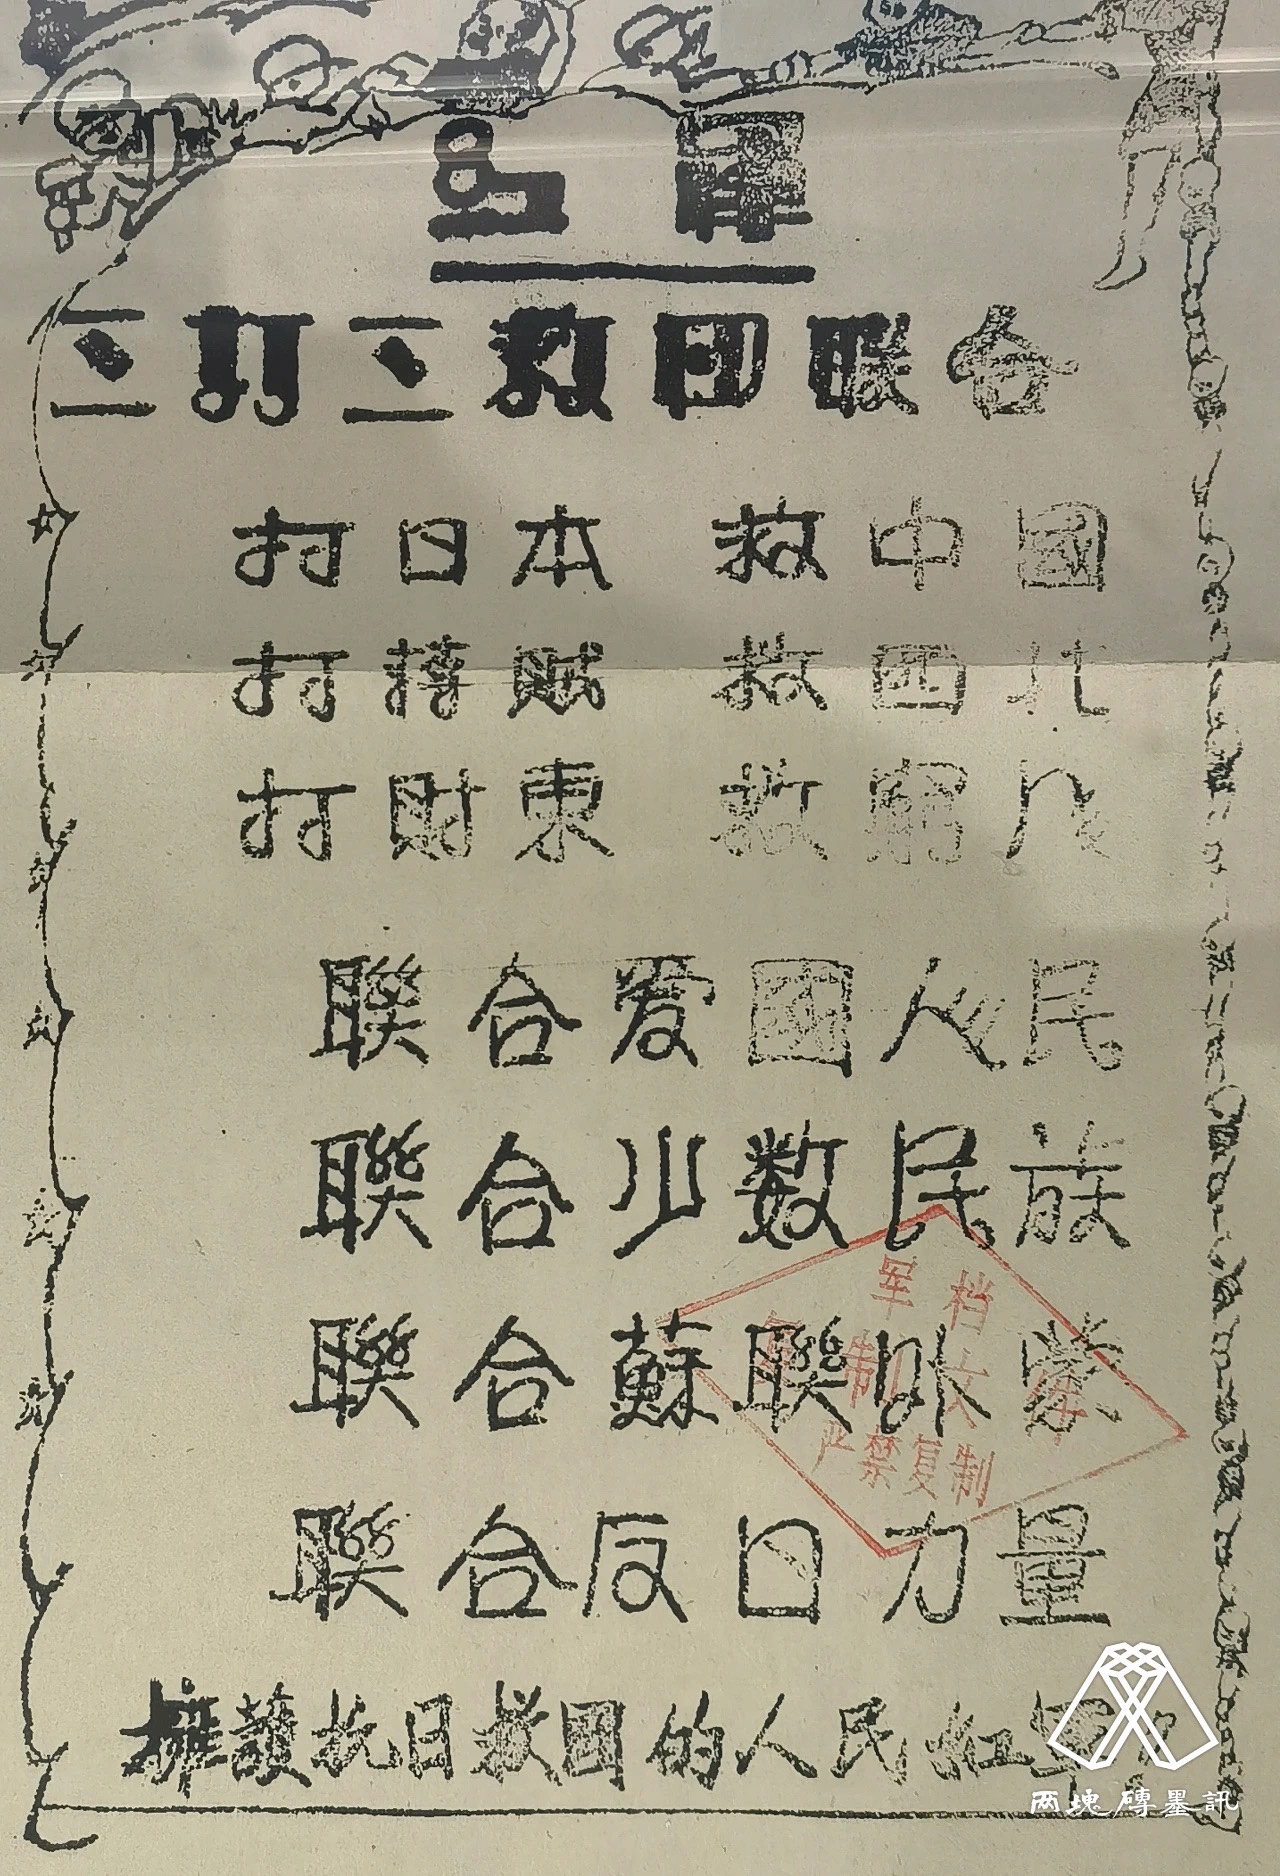 三打三救四聯合
打日本 救中國
打蔣賊 救西北
打財東 救窮人
聯合爱國人民
聯合少数民族
聯合蘇聯外蒙
聯合反日力量
擁護抗日救國的人民紅軍
军档
严禁复制
两塊磚墨訊